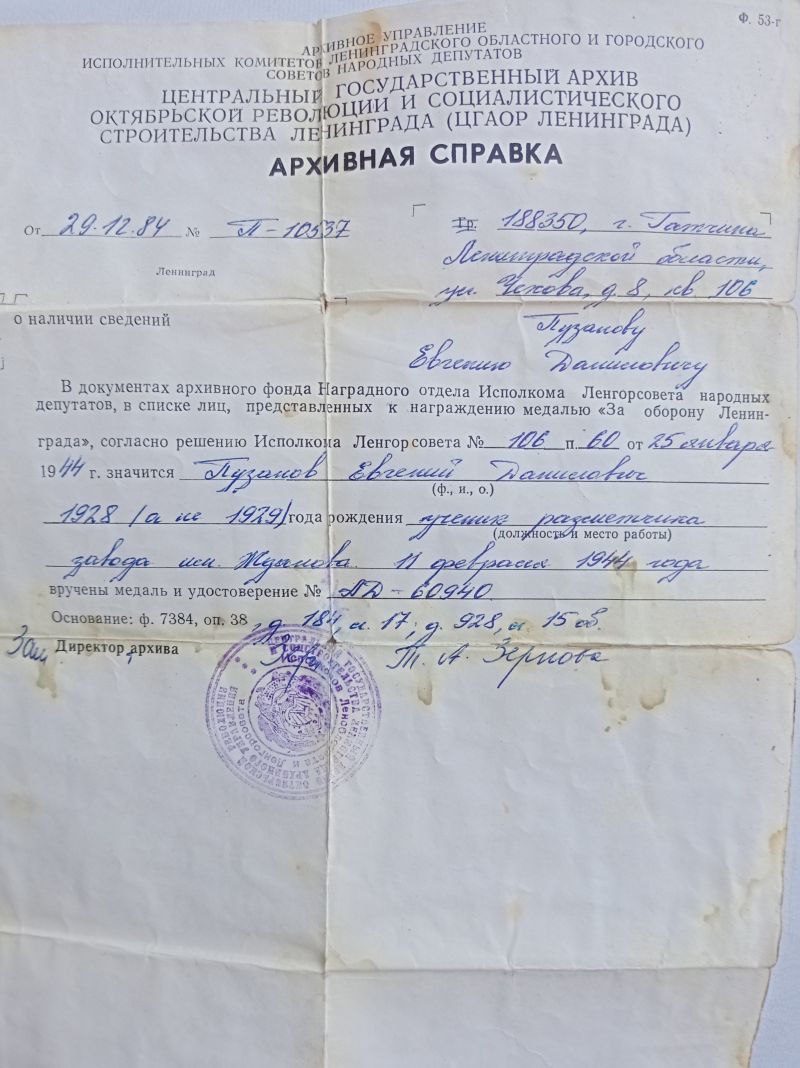 Ф. 53-г
АРХИВНОЕ УПРАВЛЕНИЕ
ИСПОЛНИТЕЛЬНЫХ КОМИТЕТОВ ЛЕНИНГРАДСКОГО ОБЛАСТНОГО И ГОРОДСКОГО
СОВЕТОВ НАРОДНЫХ ДЕПУТАТОВ
ЦЕНТРАЛЬНЫЙ ГОСУДАРСТВЕННЫЙ АРХИВ
ОКТЯБРЬСКОЙ РЕВОЛЮЦИИ И СОЦИАЛИСТИЧЕСКОГО
СТРОИТЕЛЬСТВА ЛЕНИНГРАДА (ЦГАОР ЛЕНИНГРАДА)
АРХИВНАЯ СПРАВКА
От 29.12.84 № П-10537
Ленинград
Гр. 188350, г. Гатчина
Ленинградской области,
ул. Чехова, д. 8, кв. 106
о наличии сведений
Пузанову
Евгению Даниловичу
В документах архивного фонда Наградного отдела Исполкома Ленгорсовета народных
депутатов, в списке лиц, представленных к награждению медалью «За оборону Ленин-
града», согласно решению Исполкома Ленгорсовета № 106 п. 60 от 25 января
1944 г. значится Пузанов Евгений Данилович
(ф., и., о.)
1928 (а не 1929) года рождения ученик разметчика
(должность и место работы)
завода им. Жданова. 11 февраля 1944 года
вручены медаль и удостоверение № ЛД-60940.
Основание: ф. 7384, оп. 38, д. 184, л. 17; д. 928, л. 15 об.
Зам Директор архива Т. А. Зернова